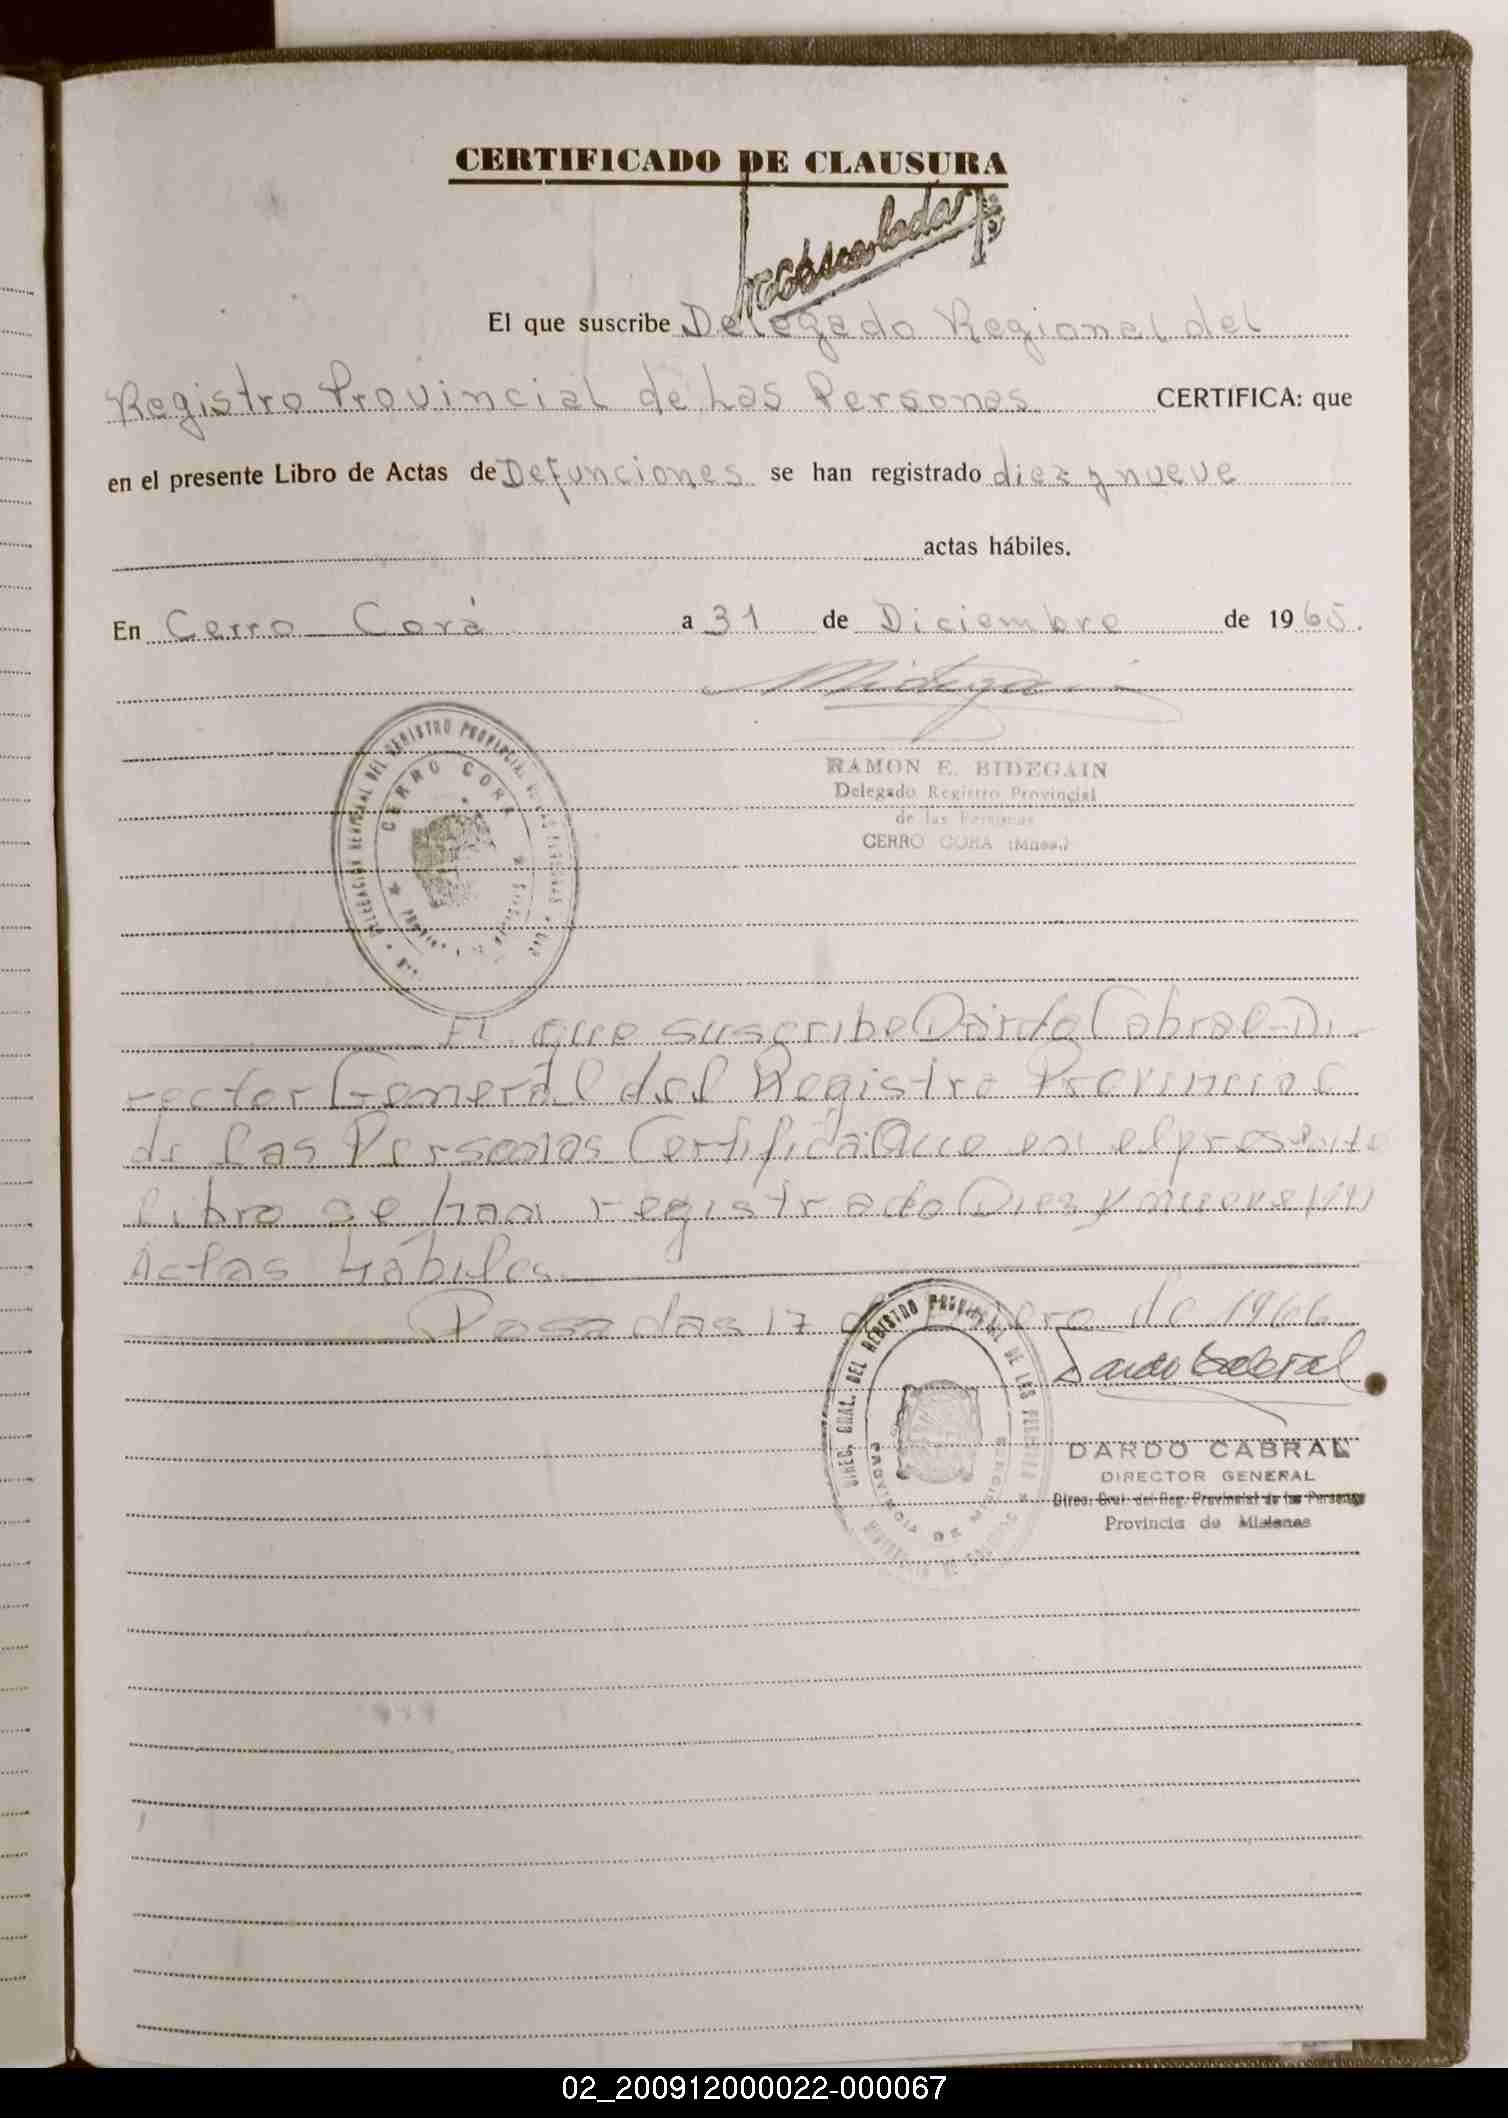 CERTIFICADO DE CLAUSURA
El que suscribe Delegado Regional del
Registro Provincial de Las Personas CERTIFICA: que
en el presente Libro de Actas de Defunciones se han registrado diez y nueve
actas hábiles.
En Cerro Corá a 31 de Diciembre de 1965.
RAMON E. BIDEGAIN
Delegado Registro Provincial
de las Personas
CERRO CORA (Mnes.)
DELEGACION REGIONAL DEL REGISTRO PROVINCIAL DE LAS PERSONAS
CERRO CORA
El que suscribe Dardo Cabral-Di
rector General del Registro Provincial
de las Personas Certifica: Que en el presente
libro se han registrado Diez y nueve (19)
Actas Hábiles.
Posadas 17 de Enero de 1966
Dardo Cabral
DIREC. GRAL. DEL REGISTRO PROVINCIAL DE LAS PERSONAS
PROVINCIA DE MISIONES
DARDO CABRAL
DIRECTOR GENERAL
Direc. Gral. del Reg. Provincial de las Personas
Provincia de Misiones
02_200912000022-000067